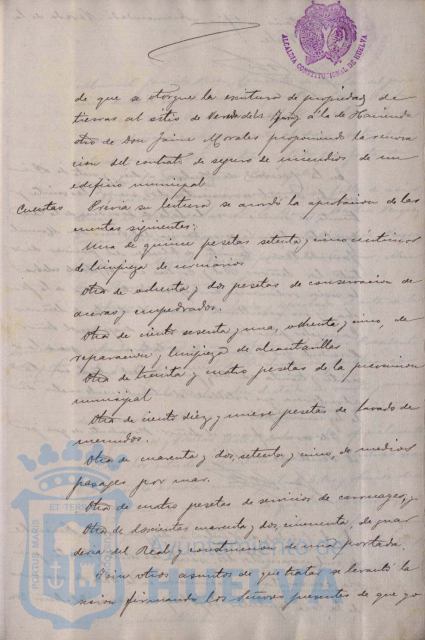 ALCALDIA CONSTITUCIONAL DE HUELVA
de que se otorgue la escritura de propiedad de
tierras al sitio de a la de Hacienda
otro de Don Jaime Morales proponiendo la renova
cion del contrato de seguro de incendios de un
edificio municipal
Cuentas Previa su lectura se acordó la aprobacion de las
cuentas siguientes:
Una de quince pesetas setenta y cinco centimos
de limpieza de urinarios
Otra de ochenta y dos pesetas de conservacion de
aceras y empedrados.
Otra de ciento sesenta y una, ochenta y cinco, de
reparacion y limpieza de alcantarillas
Otra de treinta y cuatro pesetas de la prevencion
municipal
Otra de ciento diez y nueve pesetas de lavado de
menudos.
Otra de cuarenta y dos, setenta y cinco, de medios
pasages por mar.
Otra de cuatro pesetas de servicio de carruages, y
Otra de doscientas cuarenta y dos, cincuenta, de guar
deria del Real y construccion de su portada.
Y sin otros asuntos de que tratar se levantó la
sesion firmando los Señores presentes de que yo
PORTUS MARIS ET TERRAE
Ayuntamiento de
HUELVA